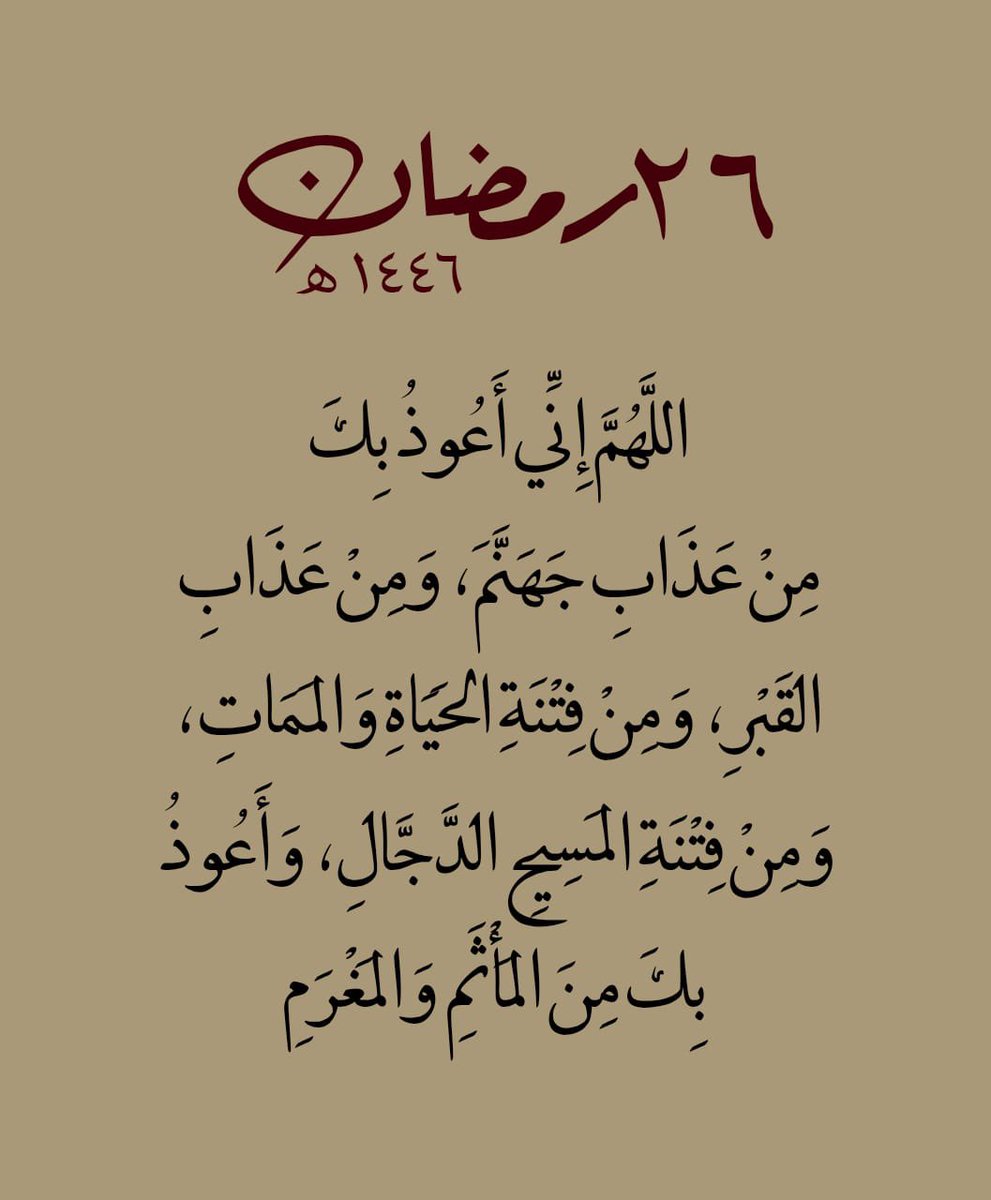 ٢٦ رمضان
١٤٤٦ هـ
اللَّهُمَّ إِنِّي أَعُوذُ بِكَ
مِنْ عَذَابِ جَهَنَّمَ، وَمِنْ عَذَابِ
القَبْرِ، وَمِنْ فِتْنَةِ الحَيَاةِ وَالمَمَاتِ،
وَمِنْ فِتْنَةِ المَسِيحِ الدَّجَّالِ، وَأَعُوذُ
بِكَ مِنَ المَأْثَمِ وَالمَغْرَمِ